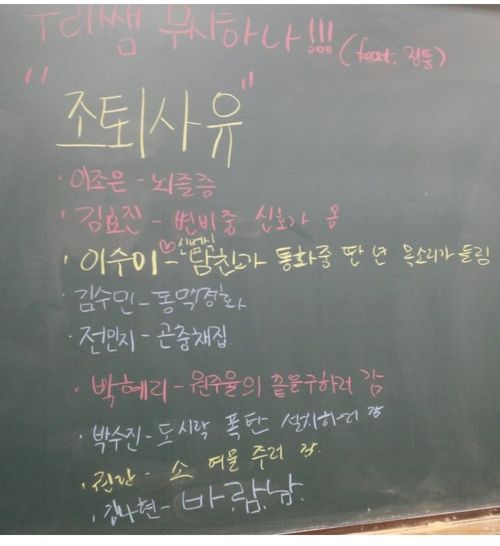 우리쌤 무사하나!!! (feat. 김똥)
"조퇴사유"
· 이조은 - 뇌졸증
· 김효진 - 변비중 신호가 옴
· 이수이 ♡ - 신병식 남친과 통화중 딴 년 목소리가 들림
· 김수민 - 동맥경화
· 전민지 - 곤충채집
· 박혜리 - 원주율의 끝을구하러 감
· 박수진 - 도시락 폭탄 설치하러 감
· 소 여물 주러 감
· 김나현 - 바.람.남.